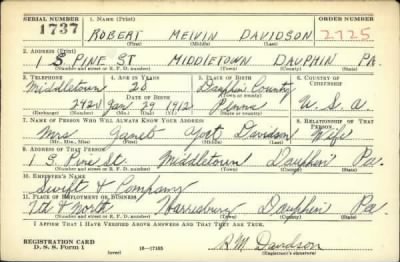 SERIAL NUMBER 1. NAME (Print) ORDER NUMBER
1737 ROBERT MELVIN DAVIDSON 2725
(First) (Middle) (Last)
2. ADDRESS (Print)
1 S PINE ST MIDDLETOWN DAUPHIN PA.
(Number and street or R. F. D. number) (Town) (County) (State)
3. TELEPHONE 4. AGE IN YEARS 5. PLACE OF BIRTH 6. COUNTRY OF CITIZENSHIP
Middletown 28 Dauphin County
DATE OF BIRTH (Town or county)
292J Jan 29 1912 Penna U. S. A.
(Exchange) (Number) (Mo.) (Day) (Yr.) (State or country)
7. NAME OF PERSON WHO WILL ALWAYS KNOW YOUR ADDRESS 8. RELATIONSHIP OF THAT PERSON
Mrs Janet Yost Davidson Wife
(Mr., Mrs., Miss) (First) (Middle) (Last)
9. ADDRESS OF THAT PERSON
1 S. Pine St. Middletown Dauphin Pa
(Number and street or R. F. D. number) (Town) (County) (State)
10. EMPLOYER'S NAME
Swift & Company
11. PLACE OF EMPLOYMENT OR BUSINESS
7th & North Harrisburg Dauphin Pa
(Number and street or R. F. D. number) (Town) (County) (State)
I AFFIRM THAT I HAVE VERIFIED ABOVE ANSWERS AND THAT THEY ARE TRUE.
REGISTRATION CARD R. M. Davidson
D. S. S. Form 1 (over) 16—17105 (Registrant's signature)